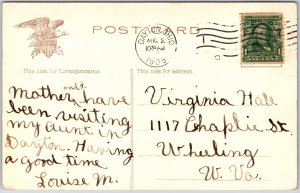 POSTCARD
DAYTON, OHIO
AUG. 2
1909
This side for Correspondence.
This side for Address.
Mother and I have
been visiting
my aunt in
Dayton. Having
a good time
Louise M.
Virginia Hall
1117 Chaplie St.
Wheeling
W. Va.